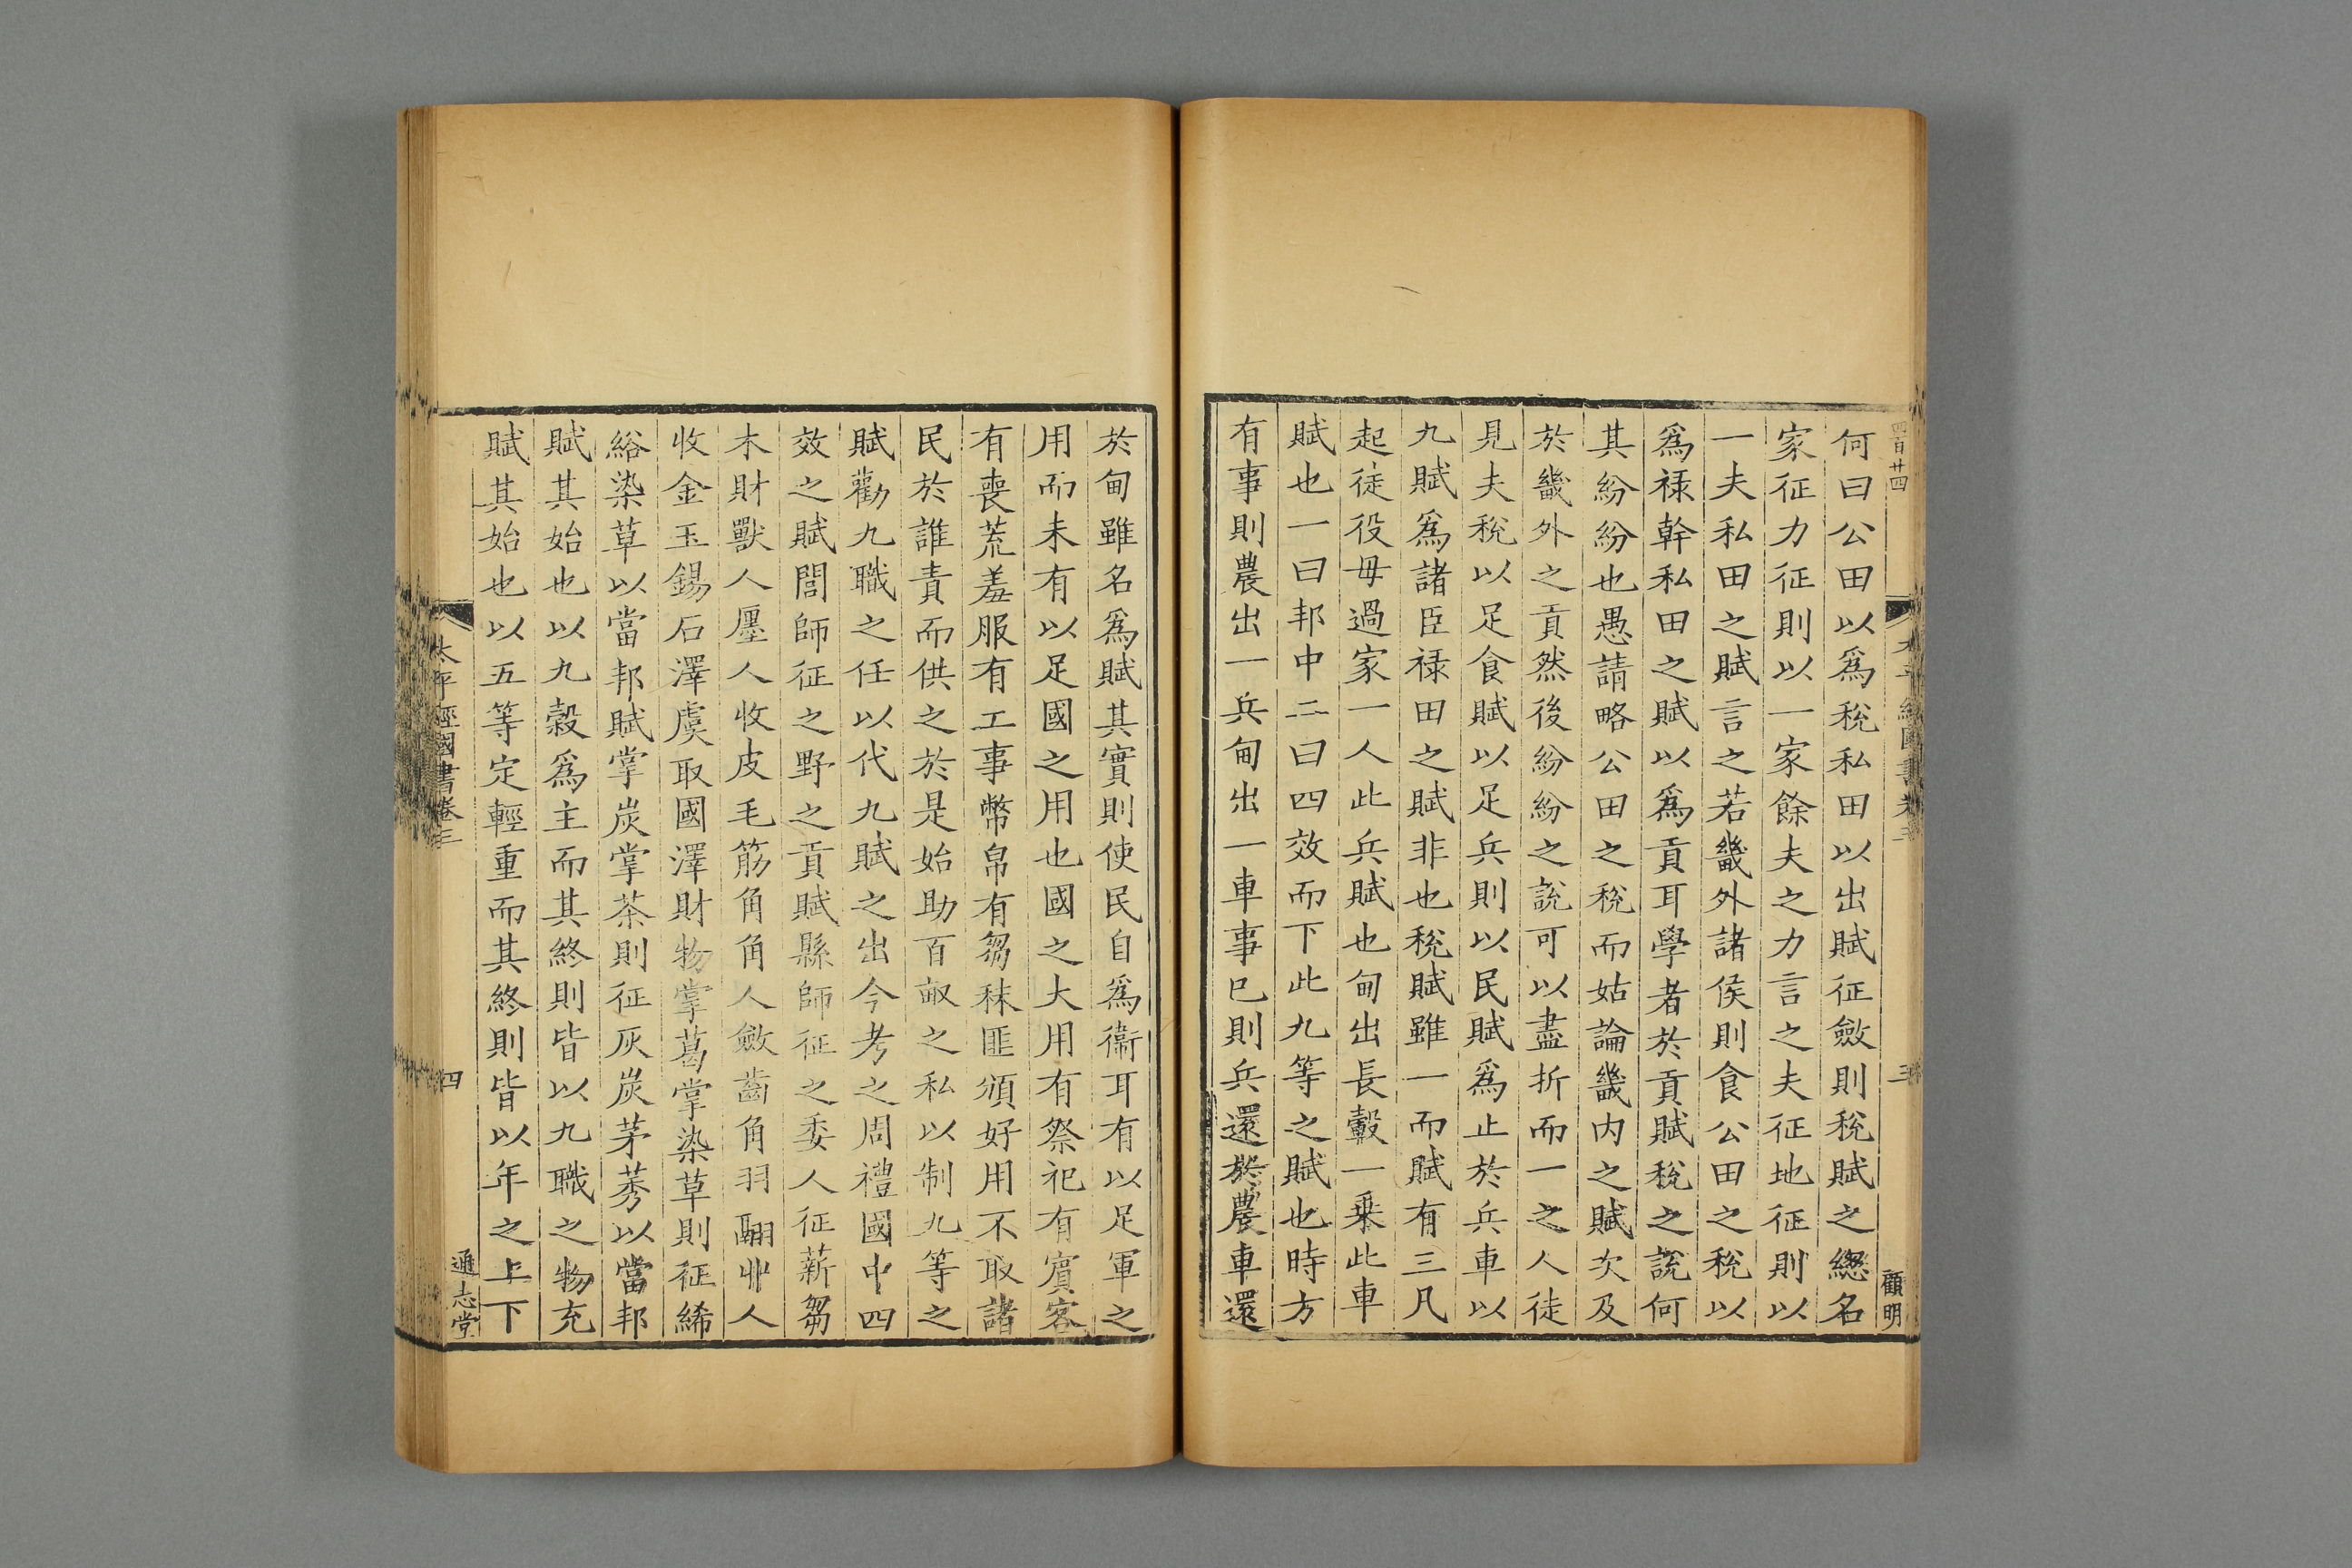 四百廿四
太平經國書卷三
三
顧明
何曰公田以爲稅私田以出賦征斂則稅賦之緫名
家征力征則以一家餘夫之力言之夫征地征則以
一夫私田之賦言之若畿外諸侯則食公田之稅以
爲祿幹私田之賦以爲貢耳學者於貢賦稅之說何
其紛紛也愚請略公田之稅而姑論畿内之賦次及
於畿外之貢然後紛紛之說可以盡折而一之人徒
見夫稅以足食賦以足兵則以民賦爲止於兵車以
九賦爲諸臣祿田之賦非也稅賦雖一而賦有三凡
起徒役毋過家一人此兵賦也甸出長轂一乗此車
賦也一曰邦中二曰四效而下此九等之賦也時方
有事則農出一兵甸出一車事巳則兵還於農車還
於甸雖名爲賦其實則使民自爲衞耳有以足軍之
用而未有以足國之用也國之大用有祭祀有賔客
有喪荒羞服有工事幣帛有芻秣匪頒好用不取諸
民於誰責而供之於是始助百畝之私以制九等之
賦勸九職之任以代九賦之出今考之周禮國中四
效之賦閭師征之野之貢賦縣師征之委人征薪芻
木財獸人廛人收皮毛筋角角人斂齒角羽翮丱人
收金玉錫石澤虞取國澤財物掌葛掌染草則征絺
綌染草以當邦賦掌炭掌荼則征灰炭茅莠以當邦
賦其始也以九穀爲主而其終則皆以九職之物充
賦其始也以五等定輕重而其終則皆以年之上下
太平經國書卷三
四
通志堂